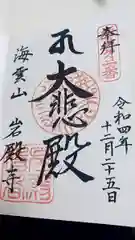 奉拝
令和四年
十二月二十五日
大悲殿
海雲山
岩殿寺